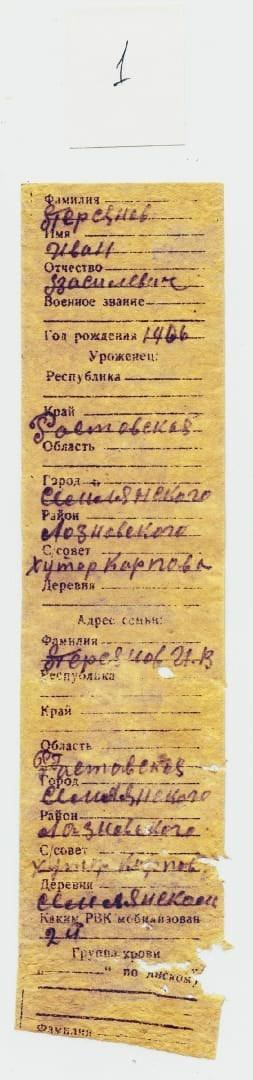 1
Фамилия
Терсянов
Имя
Иван
Отчество
Василевич
Военное звание
Год рождения 1906
Уроженец:
Республика
Край
Ростовская
Область
Город
Семлянского
Район
Лозновского
С/совет
Хутор Карпова
Деревня
Адрес семьи:
Фамилия
Терсянов И.В
Республика
Край
Область
Ростовская
Город
Семлянского
Район
Лозновского
С/совет
Хутор Карпов
Деревня
Семлянском
Каким РВК мобилизован
Группа крови
„ “ по янском,
Фамилия